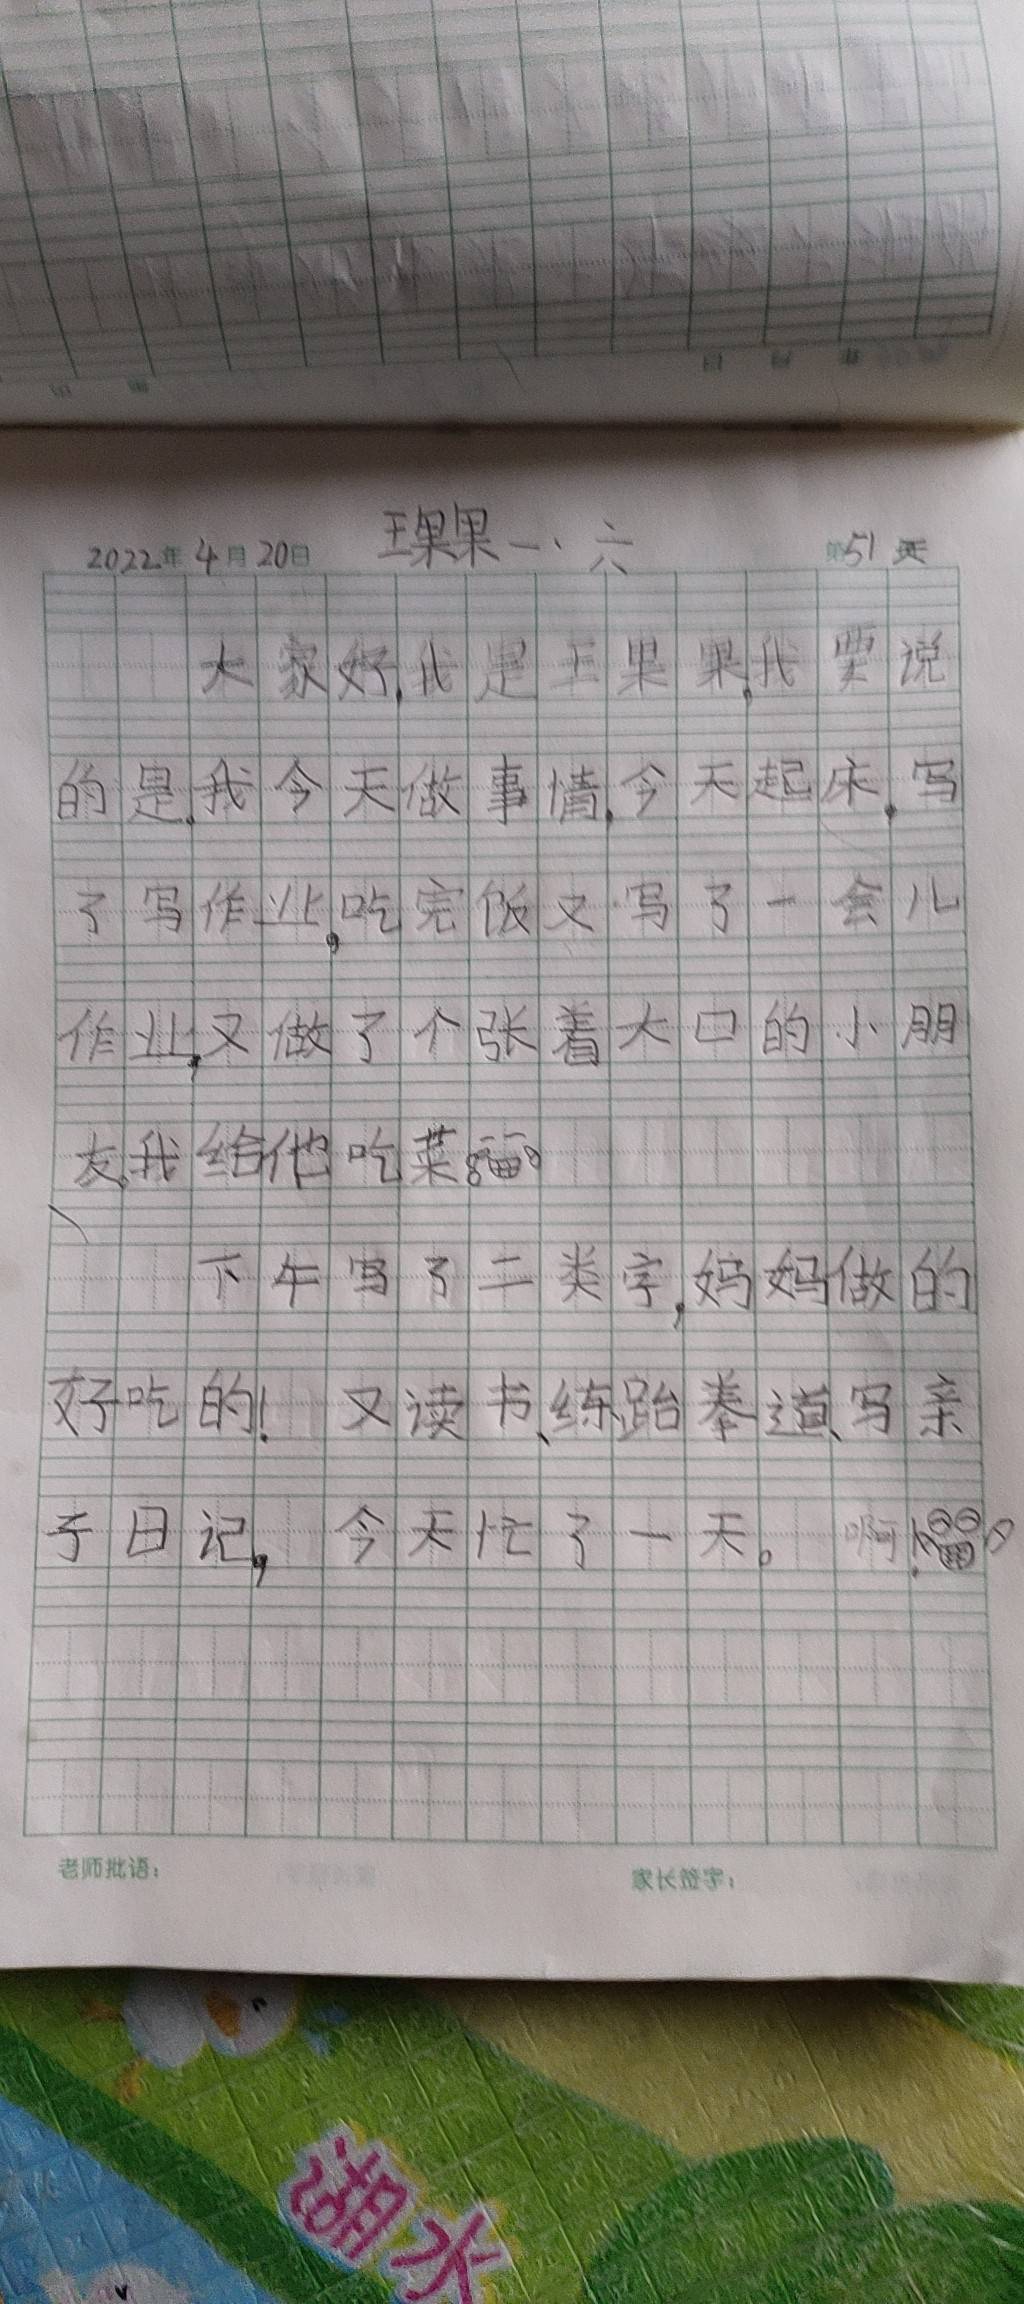 2022年4月20日 王果果 一.六 第51天
大家好,我是王果果,我要说
的是,我今天做事情,今天起床,写
了写作业,吃完饭又写了一会儿
作业,又做了个张着大口的小朋
友,我给他吃菜。
下午写了二类字,妈妈做的
好吃的! 又读书、练跆拳道、写亲
子日记, 今天忙了一天。 啊!
老师批语: 家长签字:
湖水